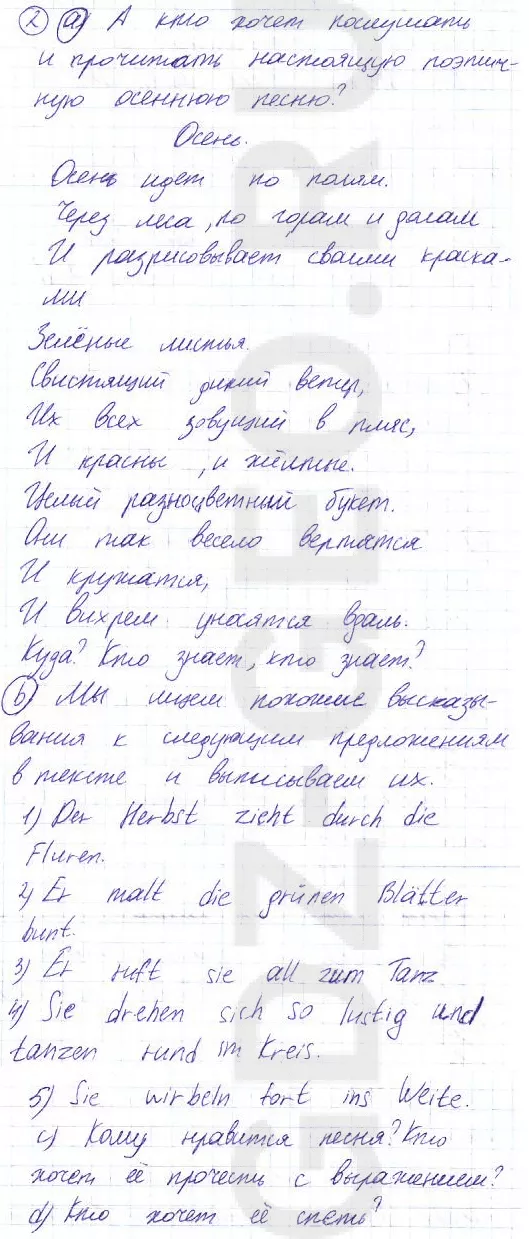 2 a) А кто хочет послушать
и прочитать настоящую поэтич-
ную осеннюю песню?
Осень.
Осень идет по полям.
Через леса, по горам и далам
И разрисовывает своими краска-
ми
Зелёные листья.
Свистящий дикий ветер,
Их всех зовущий в пляс,
И красны, и жёлтые.
Целый разноцветный букет.
Они так весело вертятся
И кружатся,
И вихрем уносятся вдаль.
Куда? Кто знает, кто знает?
b) Мы ищем похожие высказы-
вания к следующим предложениям
в тексте и выписываем их.
1) Der Herbst zieht durch die
Fluren.
2) Er malt die grünen Blätter
bunt.
3) Er ruft sie all zum Tanz
4) Sie drehen sich so lustig und
tanzen rund im Kreis.
5) Sie wirbeln fort ins Weite.
c) Кому нравится песня? Кто
хочет её прочесть с выражением?
d) Кто хочет её спеть?
GDZ-GEO.RU